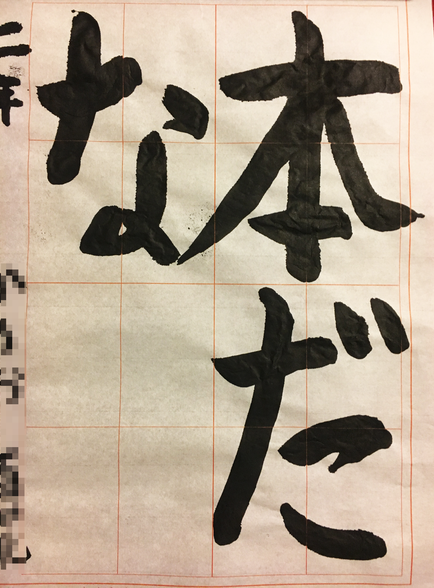 本だ
な
二年